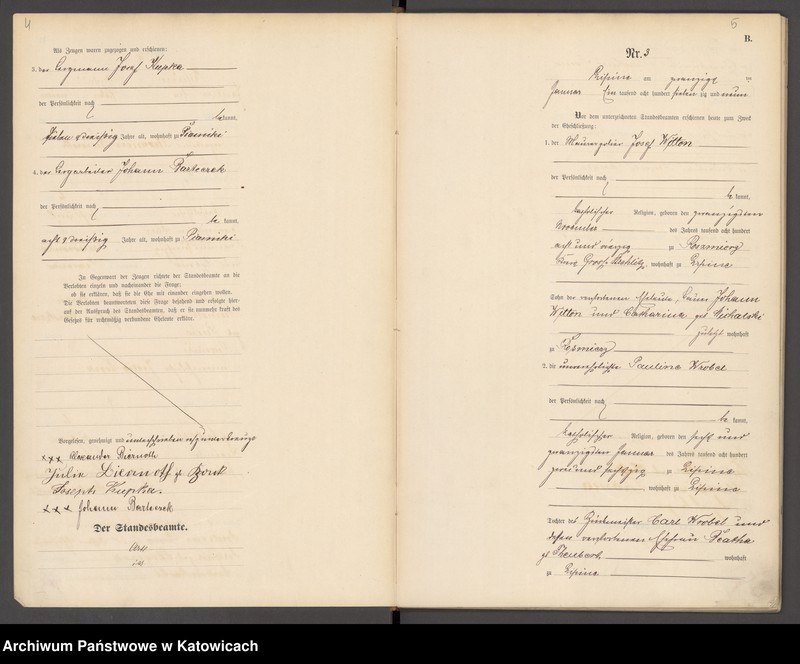 4
Als Zeugen waren zugezogen und erschienen:
3. der Bergmann Josef Kupka
der Persönlichkeit nach
be kannt,
sieben & dreißig Jahre alt, wohnhaft zu
4. der Johann Bartczak
der Persönlichkeit nach
be kannt,
acht & dreißig Jahre alt, wohnhaft zu
In Gegenwart der Zeugen richtete der Standesbeamte an die
Verlobten einzeln und nacheinander die Frage:
ob sie erklären, daß sie die Ehe mit einander eingehen wollen.
Die Verlobten beantworteten diese Frage bejahend und erfolgte hier-
auf der Ausspruch des Standesbeamten, daß er sie nunmehr kraft des
Gesetzes für rechtmäßig verbundene Eheleute erkläre.
Vorgelesen, genehmigt und
xxx Alexander Biernoth
Julie Biernoth g.
Joseph Kupka.
xxx Johann Bartczak
Der Standesbeamte.
5
B.
Nr. 3
Lipine am zwanzigsten
Januar Ein tausend acht hundert siebenzig und neun.
Vor dem unterzeichneten Standesbeamten erschienen heute zum Zweck
der Eheschließung:
1. der Maurerpolier Josef Witton
der Persönlichkeit nach
be kannt,
katholischer Religion, geboren den zwanzigsten
November des Jahres tausend acht hundert
acht und vierzig zu
Kreis Groß Strehlitz, wohnhaft zu Lipine
Sohn der verstorbenen Eheleute, Johann
Witton und Catharina geb. Michalski
zuletzt wohnhaft
zu
2. die unverehelichte Paulina Wrobel
der Persönlichkeit nach
be kannt,
katholischer Religion, geboren den sechs und
zwanzigsten Januar des Jahres tausend acht hundert
zwei und sechszig zu Lipine
wohnhaft zu Lipine
Tochter des Carl Wrobel und
dessen verstorbenen Ehefrau Beatha
wohnhaft
zu Lipine
Archiwum Państwowe w Katowicach